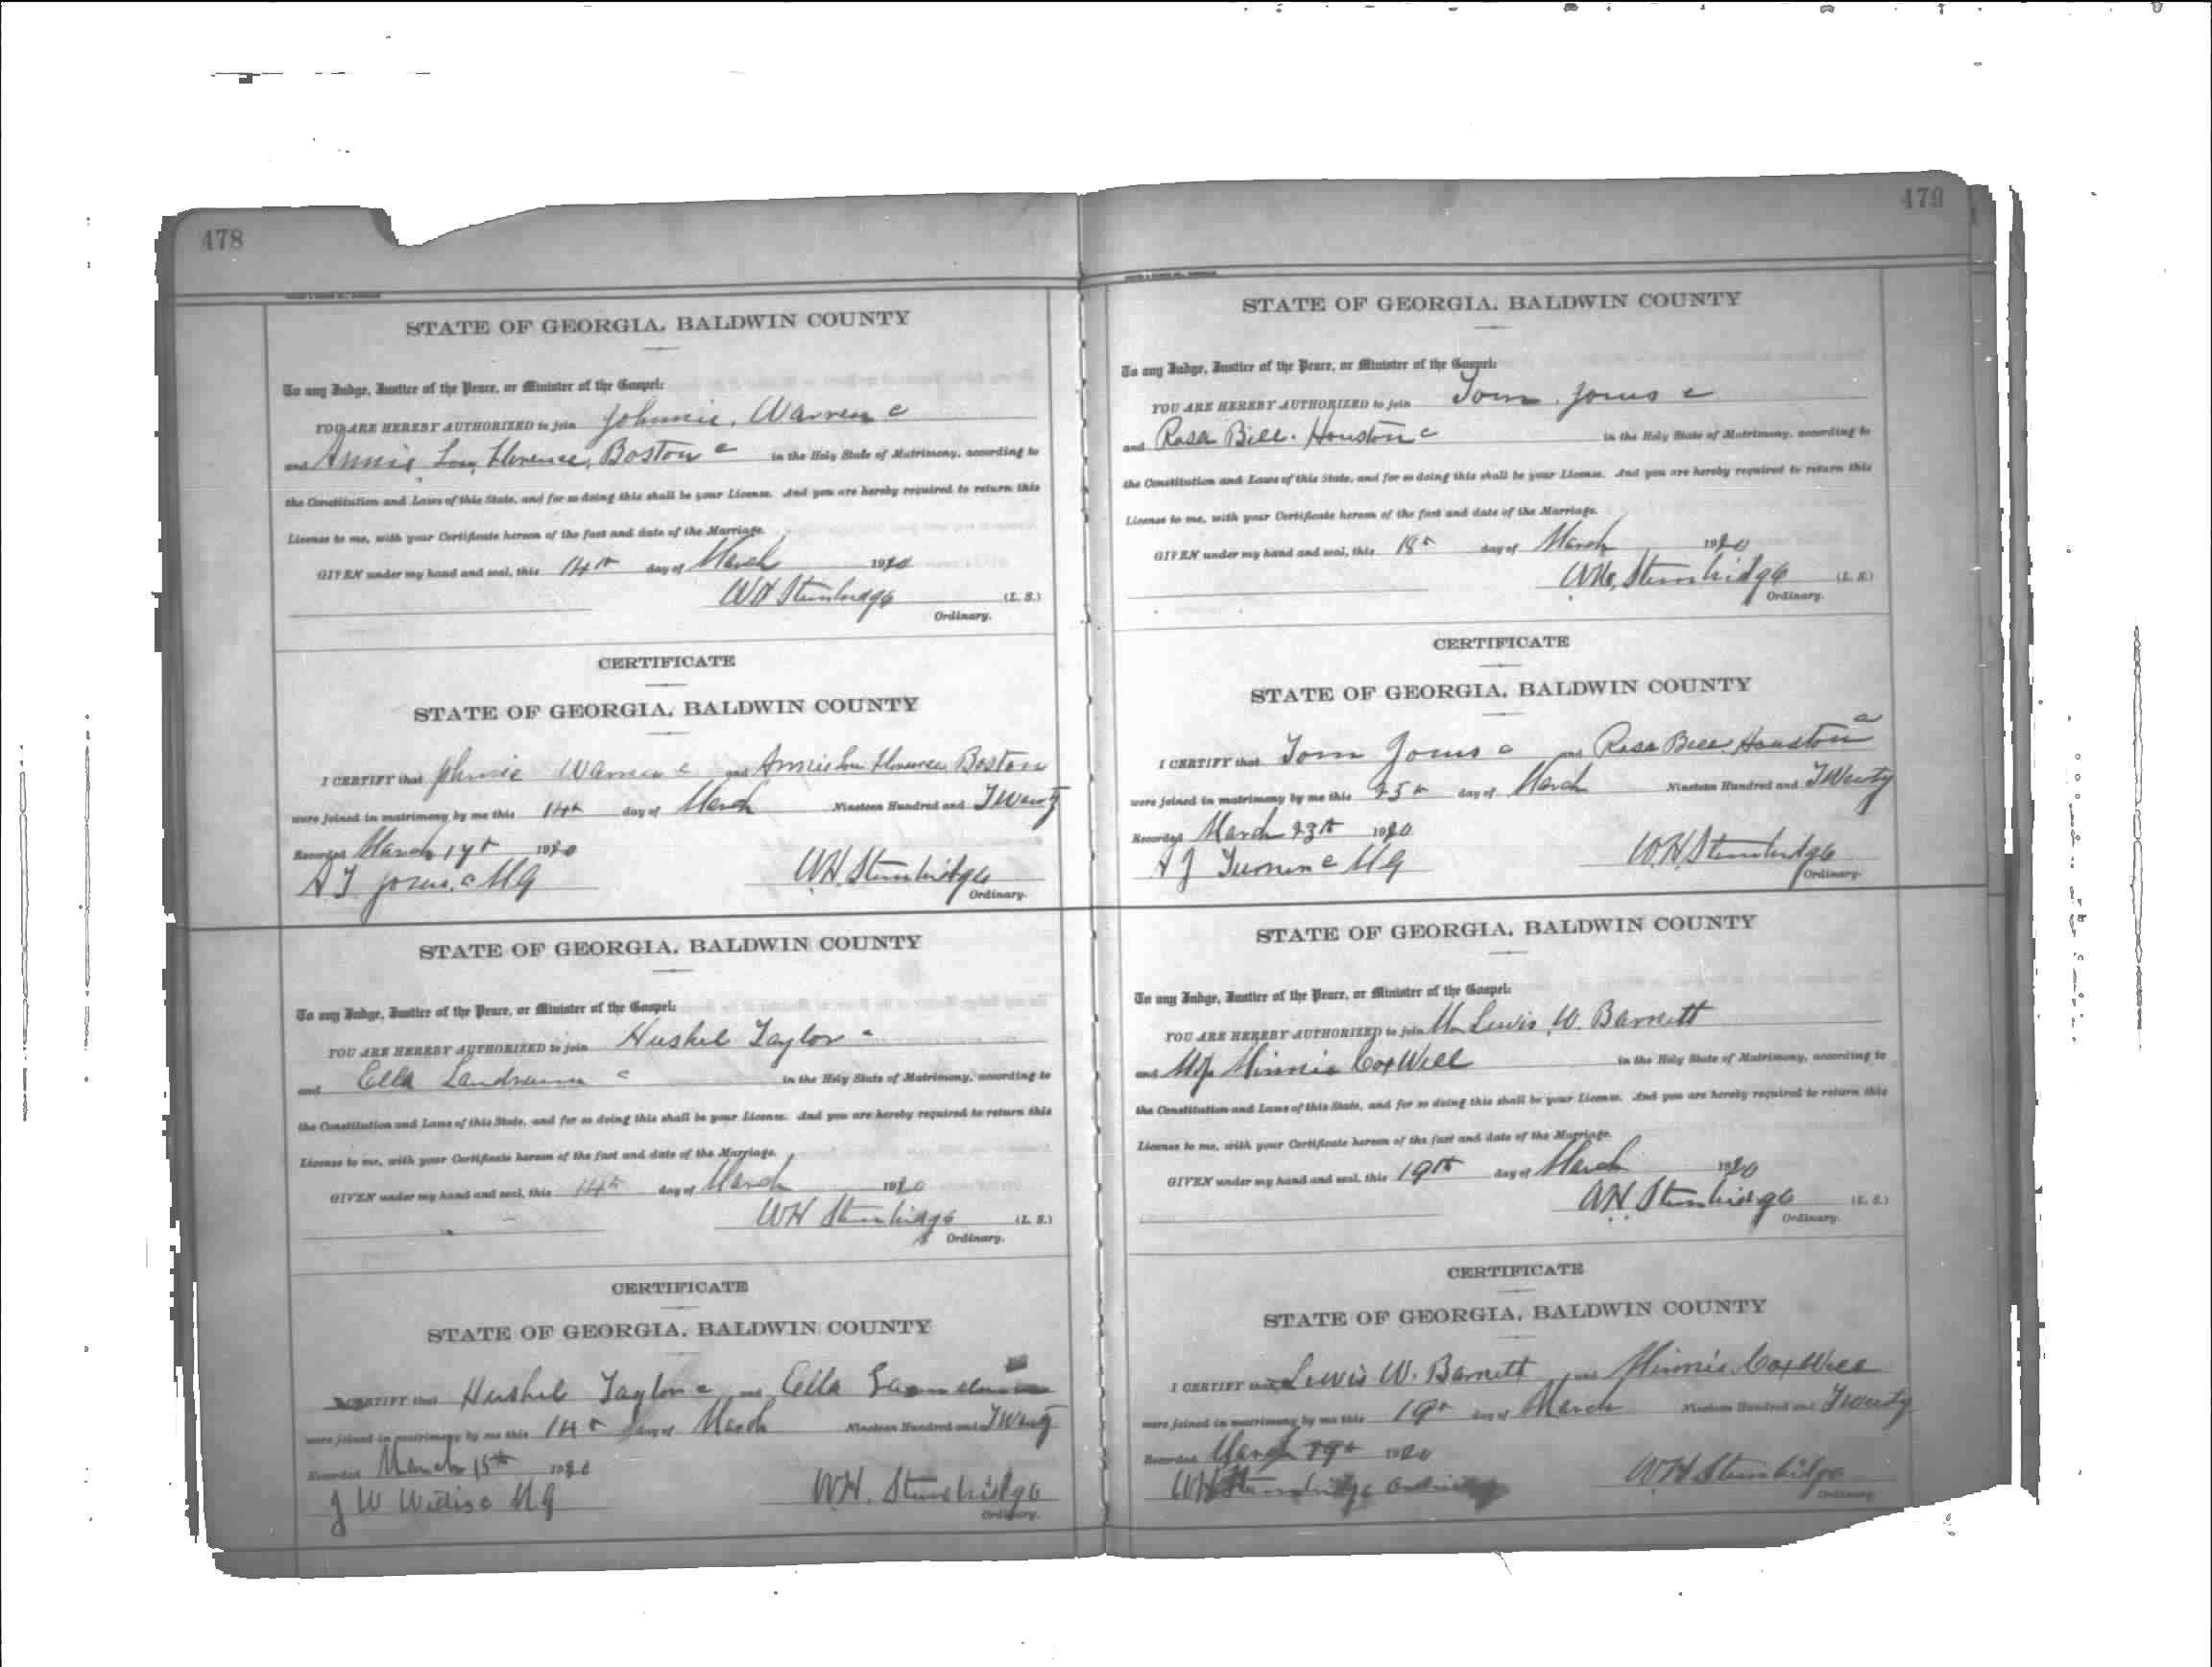 478
STATE OF GEORGIA, BALDWIN COUNTY
To any Judge, Justice of the Peace, or Minister of the Gospel:
YOU ARE HEREBY AUTHORIZED to join Johnnie, Warren c
and Annie Lou Florence, Boston c in the Holy State of Matrimony, according to
the Constitution and Laws of this State, and for so doing this shall be your License. And you are hereby required to return this
License to me, with your Certificate hereon of the fact and date of the Marriage.
GIVEN under my hand and seal, this 14th day of March 1920
WH Stembridge (L. S.)
Ordinary.
CERTIFICATE
STATE OF GEORGIA, BALDWIN COUNTY
I CERTIFY that Johnnie Warren c and Annie Lou Florence Boston
were joined in matrimony by me this 14th day of March Nineteen Hundred and Twenty
Recorded March 17th 1920
c MG WH. Stembridge
Ordinary.
STATE OF GEORGIA, BALDWIN COUNTY
To any Judge, Justice of the Peace, or Minister of the Gospel:
YOU ARE HEREBY AUTHORIZED to join Hushel Taylor c
and Ella Landrum c in the Holy State of Matrimony, according to
the Constitution and Laws of this State, and for so doing this shall be your License. And you are hereby required to return this
License to me, with your Certificate hereon of the fact and date of the Marriage.
GIVEN under my hand and seal, this 14th day of March 1920
WH Stembridge (L. S.)
Ordinary.
CERTIFICATE
STATE OF GEORGIA, BALDWIN COUNTY
I CERTIFY that Hushel Taylor c and Ella
were joined in matrimony by me this 14th day of March Nineteen Hundred and Twenty
Recorded March 15th 1920
J W Willis c MG WH. Stembridge
Ordinary.
479
STATE OF GEORGIA, BALDWIN COUNTY
To any Judge, Justice of the Peace, or Minister of the Gospel:
YOU ARE HEREBY AUTHORIZED to join Tom Jones c
and Rosa Bell Houston c in the Holy State of Matrimony, according to
the Constitution and Laws of this State, and for so doing this shall be your License. And you are hereby required to return this
License to me, with your Certificate hereon of the fact and date of the Marriage.
GIVEN under my hand and seal, this 18th day of March 1920
WH, Stembridge (L. S.)
Ordinary.
CERTIFICATE
STATE OF GEORGIA, BALDWIN COUNTY
I CERTIFY that Tom Jones c and Rosa Bell Houston c
were joined in matrimony by me this day of March Nineteen Hundred and Twenty
Recorded March 23th 1920
c MG W.H Stembridge
Ordinary.
STATE OF GEORGIA, BALDWIN COUNTY
To any Judge, Justice of the Peace, or Minister of the Gospel:
YOU ARE HEREBY AUTHORIZED to join Mr Lewis W. Barnett
and Minnie CoxWell in the Holy State of Matrimony, according to
the Constitution and Laws of this State, and for so doing this shall be your License. And you are hereby required to return this
License to me, with your Certificate hereon of the fact and date of the Marriage.
GIVEN under my hand and seal, this 19th day of March 1920
WH Stembridge (L. S.)
Ordinary.
CERTIFICATE
STATE OF GEORGIA, BALDWIN COUNTY
I CERTIFY that Lewis W. Barnett and Minnie CoxWell
were joined in matrimony by me this 19th day of March Nineteen Hundred and Twenty
Recorded March 1920
WH Stembridge Ordinary WH Stembridge
Ordinary